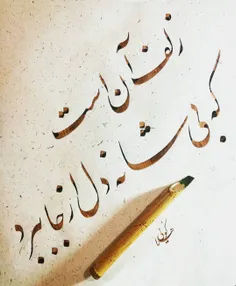 زلف آن است
که بی شانه دل از جا ببرد